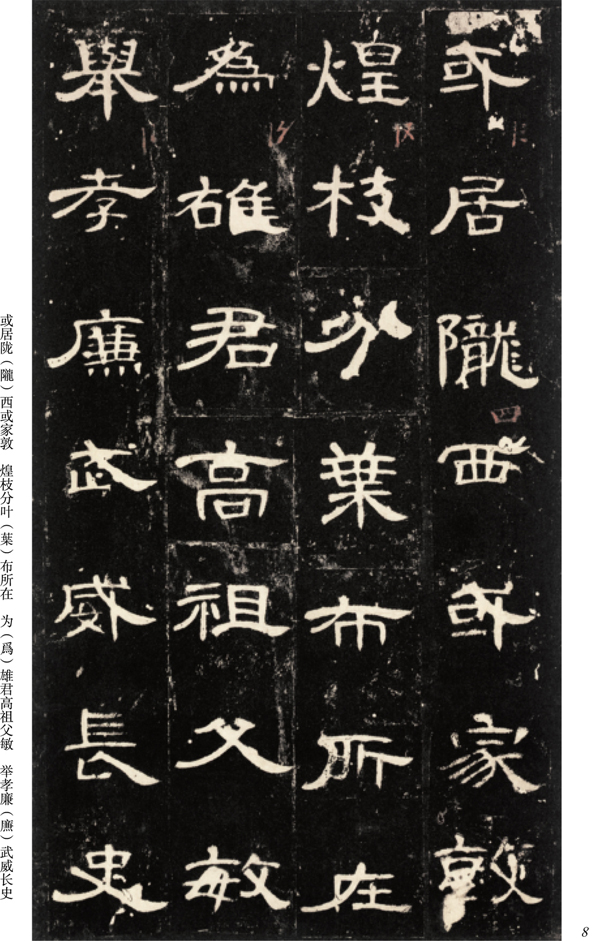 或居隴西或家敦
煌枝分葉布所在
為雄君高祖父敏
舉孝廉武威長史
或居陇（隴）西或家敦　煌枝分叶（葉）布所在　为（爲）雄君高祖父敏　举孝廉（廡）武威长史
8